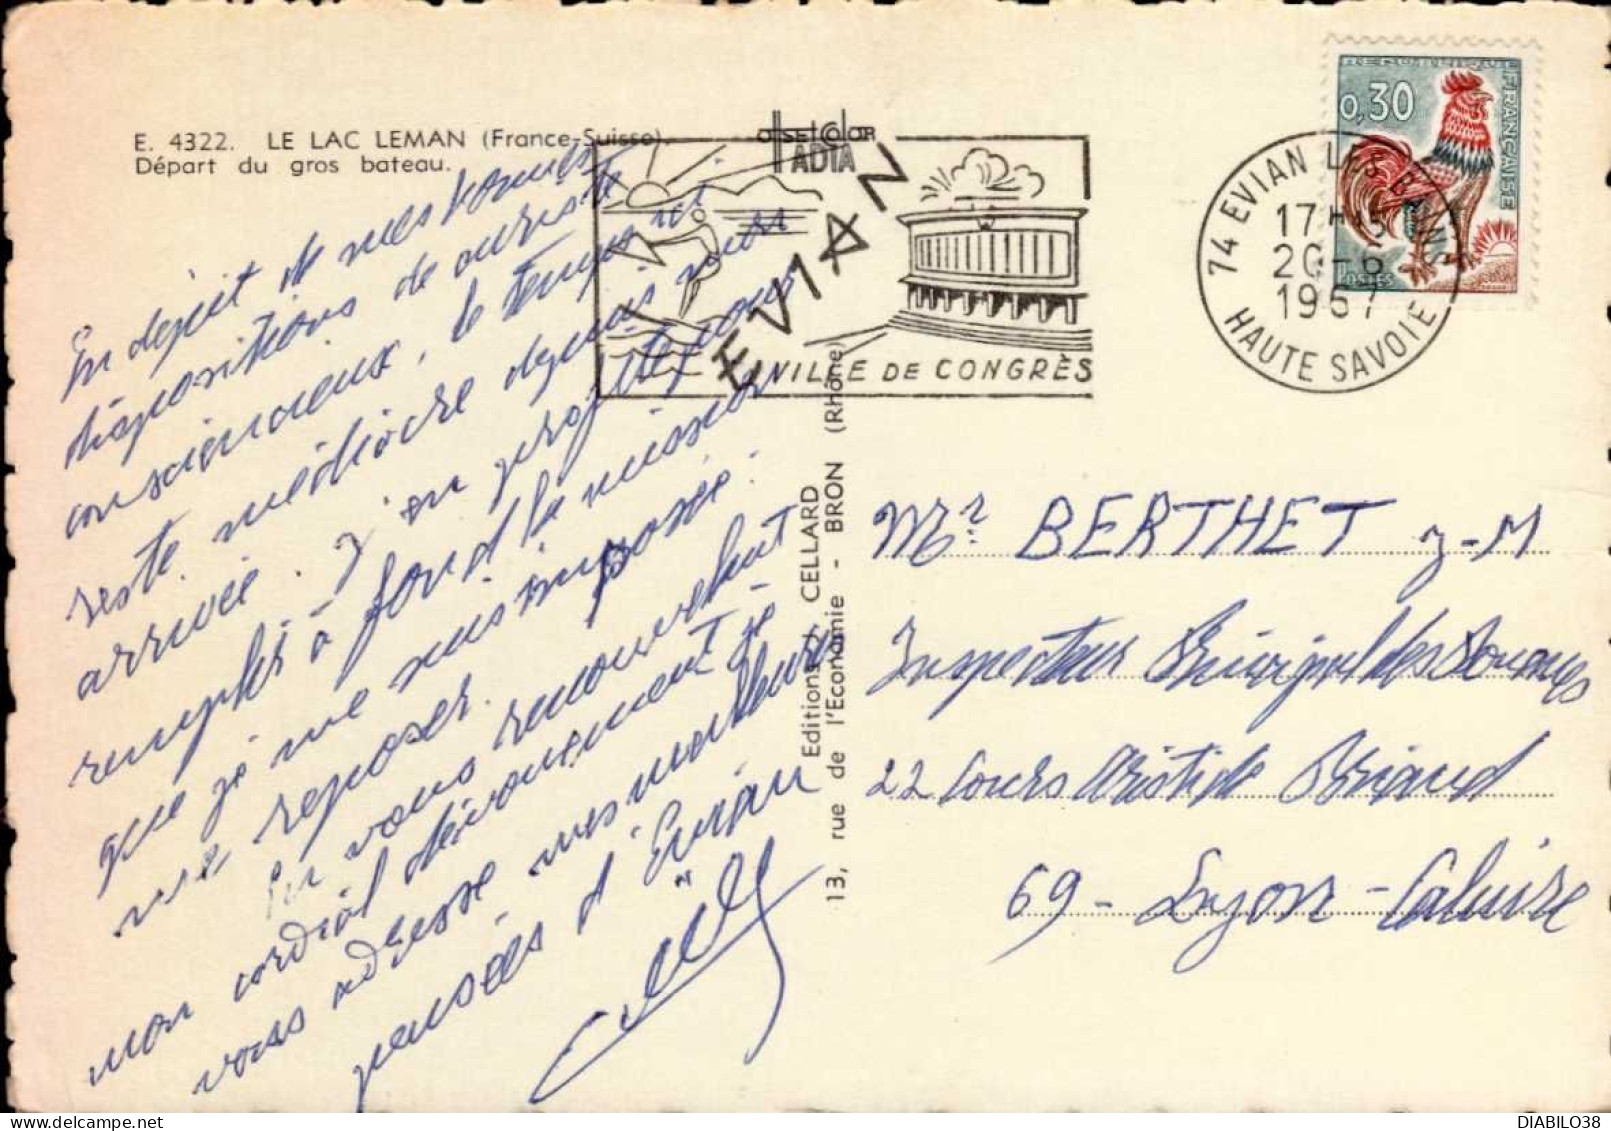 E. 4322. LE LAC LEMAN (France-Suisse).
Départ du gros bateau.
offsetcolor
IADIA
EVIAN
VILLE DE CONGRÈS
REPUBLIQUE FRANÇAISE
0,30
POSTES
74 EVIAN LES BAINS
17H15
20-6
1967
HAUTE SAVOIE
En dépit de mes bonnes
dispositions de curiste
consciencieux, le temps ici
reste médiocre depuis mon
arrivée. J'en profite pour
remplir à fond la mission
que je me suis imposée :
me reposer.
En vous renouvelant
mon cordial dévouement, je
vous adresse mes meilleures
pensées d'Evian
Editions CELLARD
13, rue de l'Economie - BRON (Rhône)
Mr BERTHET J-M
Inspecteur Principal des Douanes
22 Cours Aristide Briand
69 - Lyon - Caluire
DIABILO38